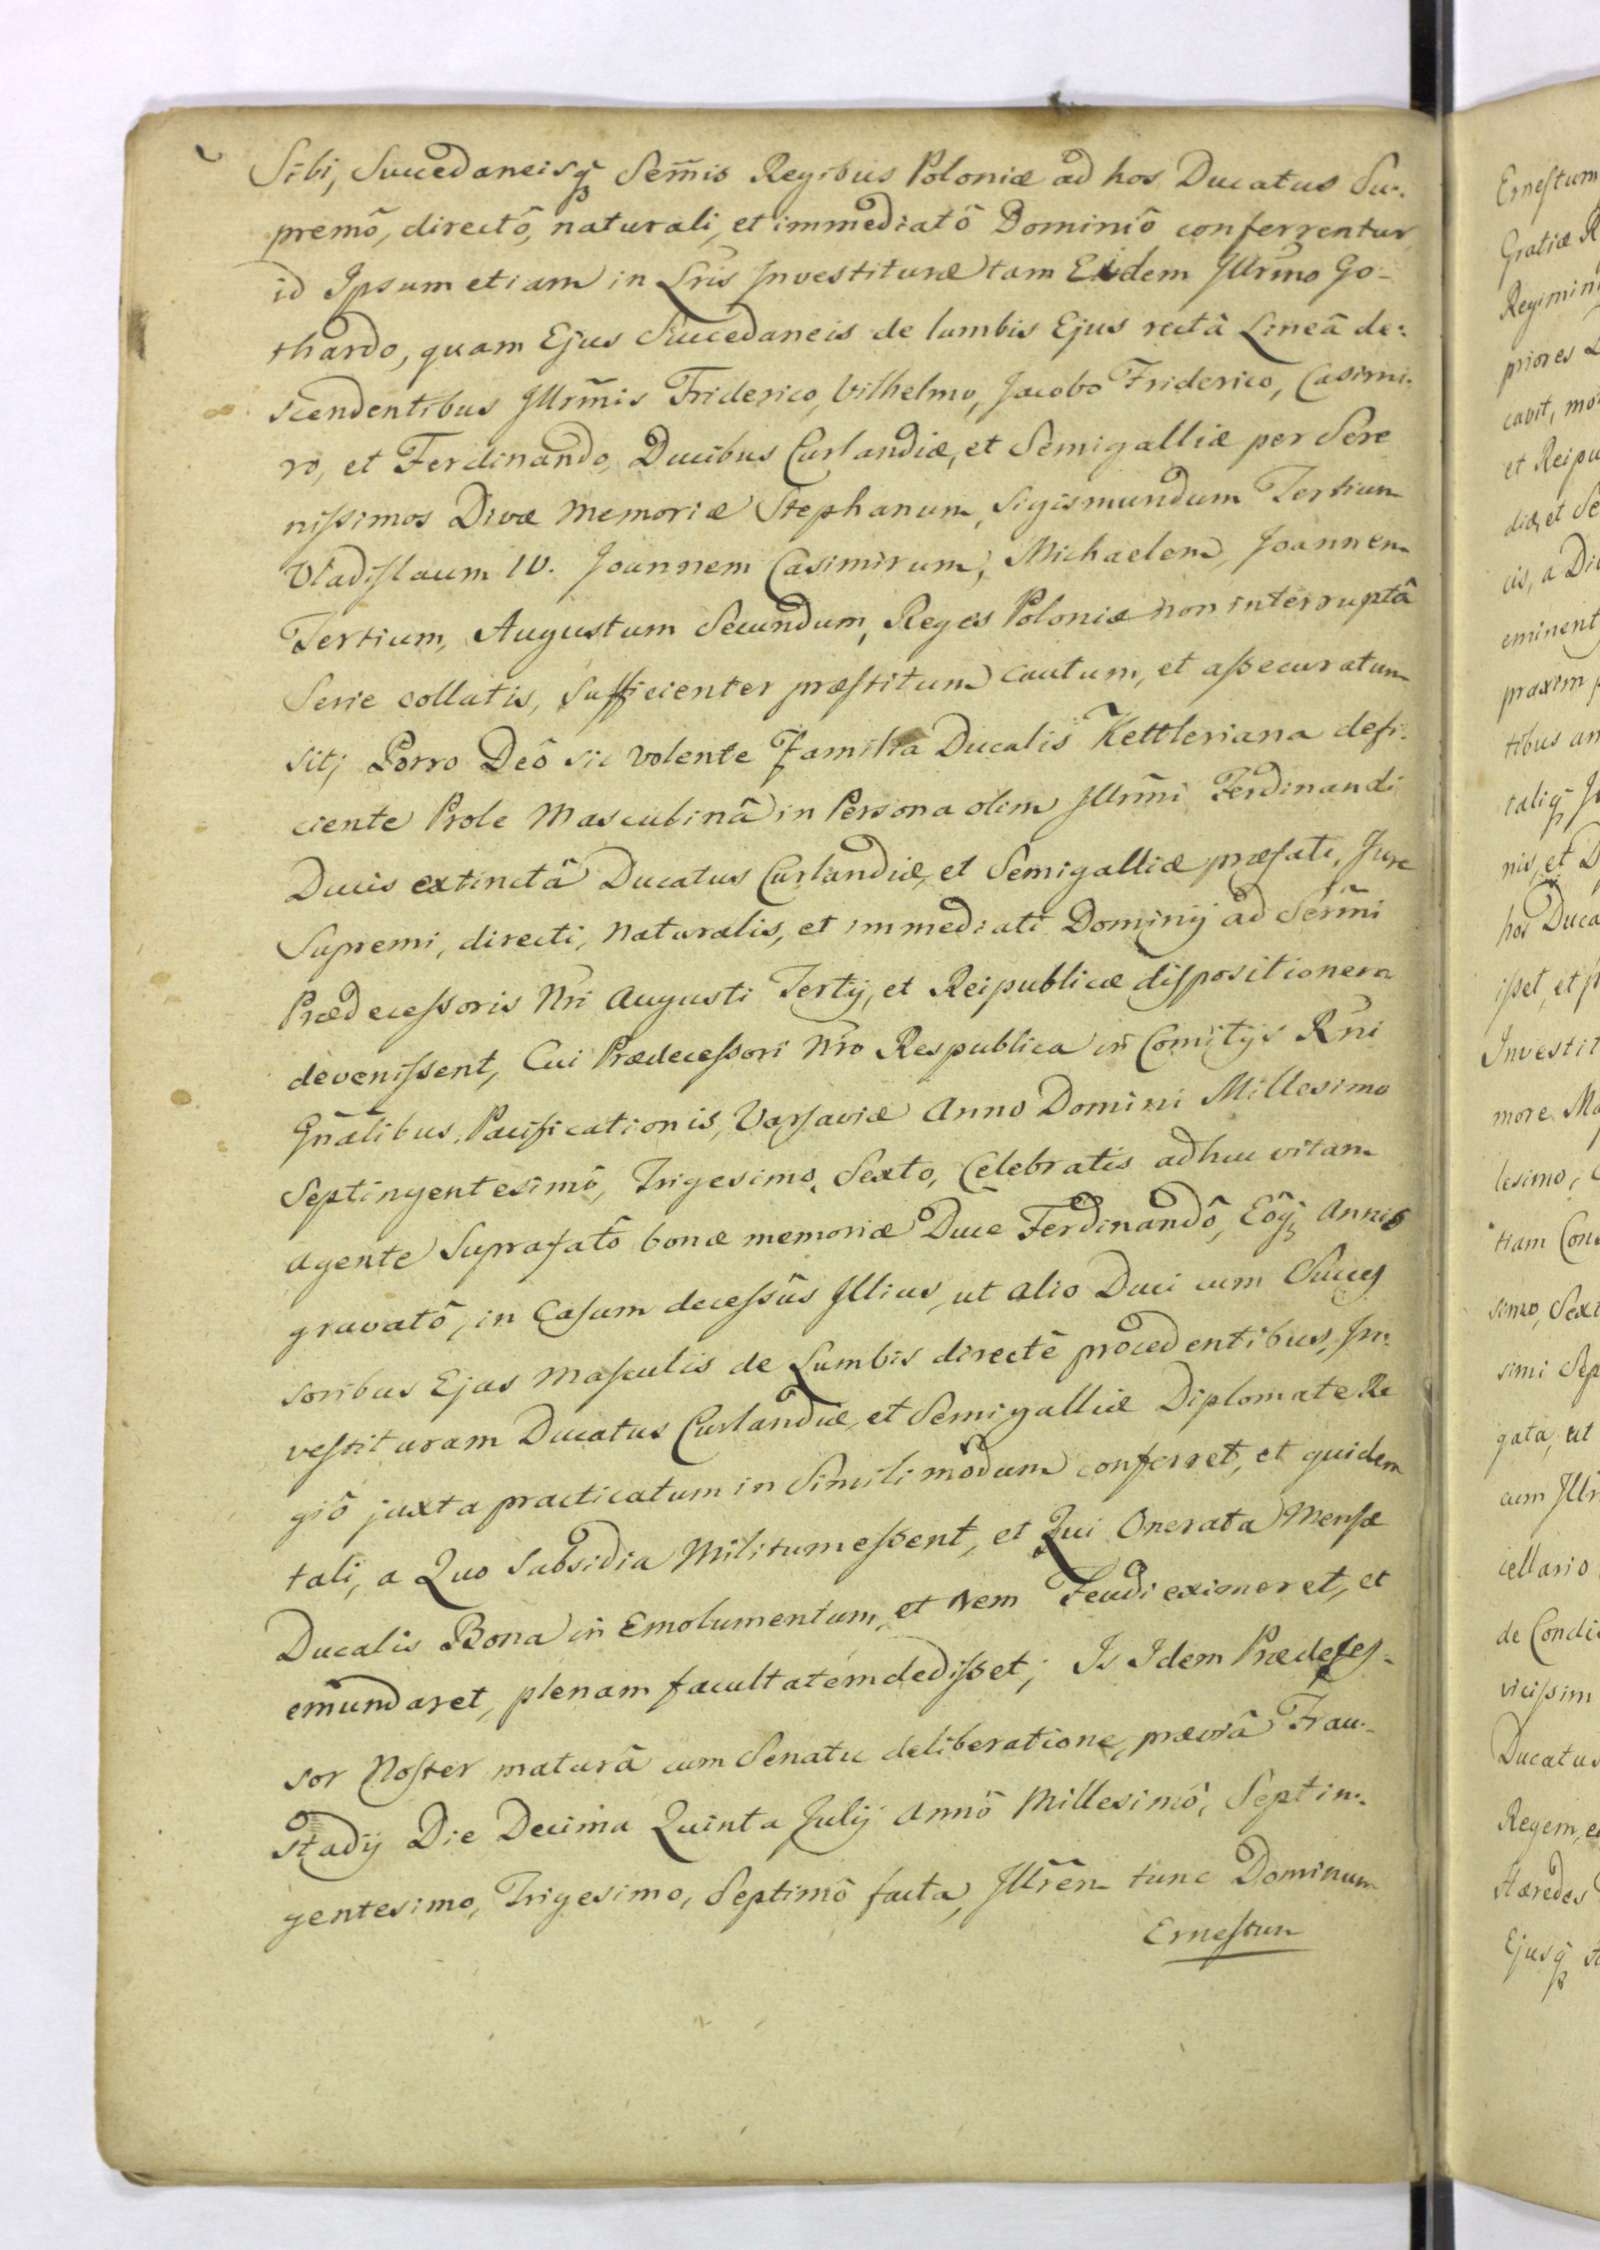 Sibi, Succedaneisq̃ Sem̃is Regibus Poloniæ ad hos Ducatus Su-
premô, directô, naturali, et immediatô Dominiô conferrentur
id Ipsum etiam in Lr̃is Investituræ tam Eidem Illr̃mo Go-
thardo, quam Ejus Succedaneis de lumbis Ejus rectâ Lineâ de-
scendentibus Illr̃mis Friderico, Vilhelmo, Jacobo Friderico, Casimi-
ro, et Ferdinando, Ducibus Curlandiæ, et Semigalliæ per Sere
nißimos Divæ Memoriæ Stephanum, Sigismundum Tertium
Vladislaum IV. Joannem Casimirum, Michaelem, Joannem
Tertium, Augustum Secundum, Reges Poloniæ non interruptâ
Serie collatis, sufficienter præstitum cautum, et aßecuratum
sit; Porro Deô sic volente Familia Ducalis Kettleriana defi-
ciente Prole Masculinâ in Persona olim Illr̃mi Ferdinandi
Ducis extinctâ Ducatus Curlandiæ, et Semigalliæ præfati, Jure
Supremi, directi, naturalis, et immediati Dominij ad Ser̃mi
Prædeceßoris Nr̃i Augusti Tertij, et Reipublicæ dispositionem
devenissent, Cui Prædeceßori Nr̃o Respublica in Comitijs Rñi
Gñalibus, Pacificationis, Varsaviæ Anno Domini Millesimo
Septingentesimô, Trigesimo, Sexto, Celebratis adhuc vitam
agente Suprafatô bonæ memoriæ Duce Ferdinandô, Eôq̃ Annis
gravatô, in Casum deceßûs Illius, ut alio Duci cum Succes
soribus Ejus Masculis de Lumbis directè procedentibus, In-
vestituram Ducatus Curlandiæ, et Semigalliæ Diplomate Re
giô juxta practicatum in Simili modum conferret, et quidem
tali, a Quo Subsidia Militum eßent, et Qui Onerata Mensæ
Ducalis Bona in Emolumentum, et rem Feudi eximeret, et
emundaret, plenam facultatem dedißet; Is Idem Prædeces-
sor Noster maturâ cum Senatu deliberatione, præviâ Frau-
stadij Die Decima Quinta Julij Annô Millesimô, Septin-
gentesimo, Trigesimo, Septimô facta, Illr̃em tunc Dominum
Ernestum